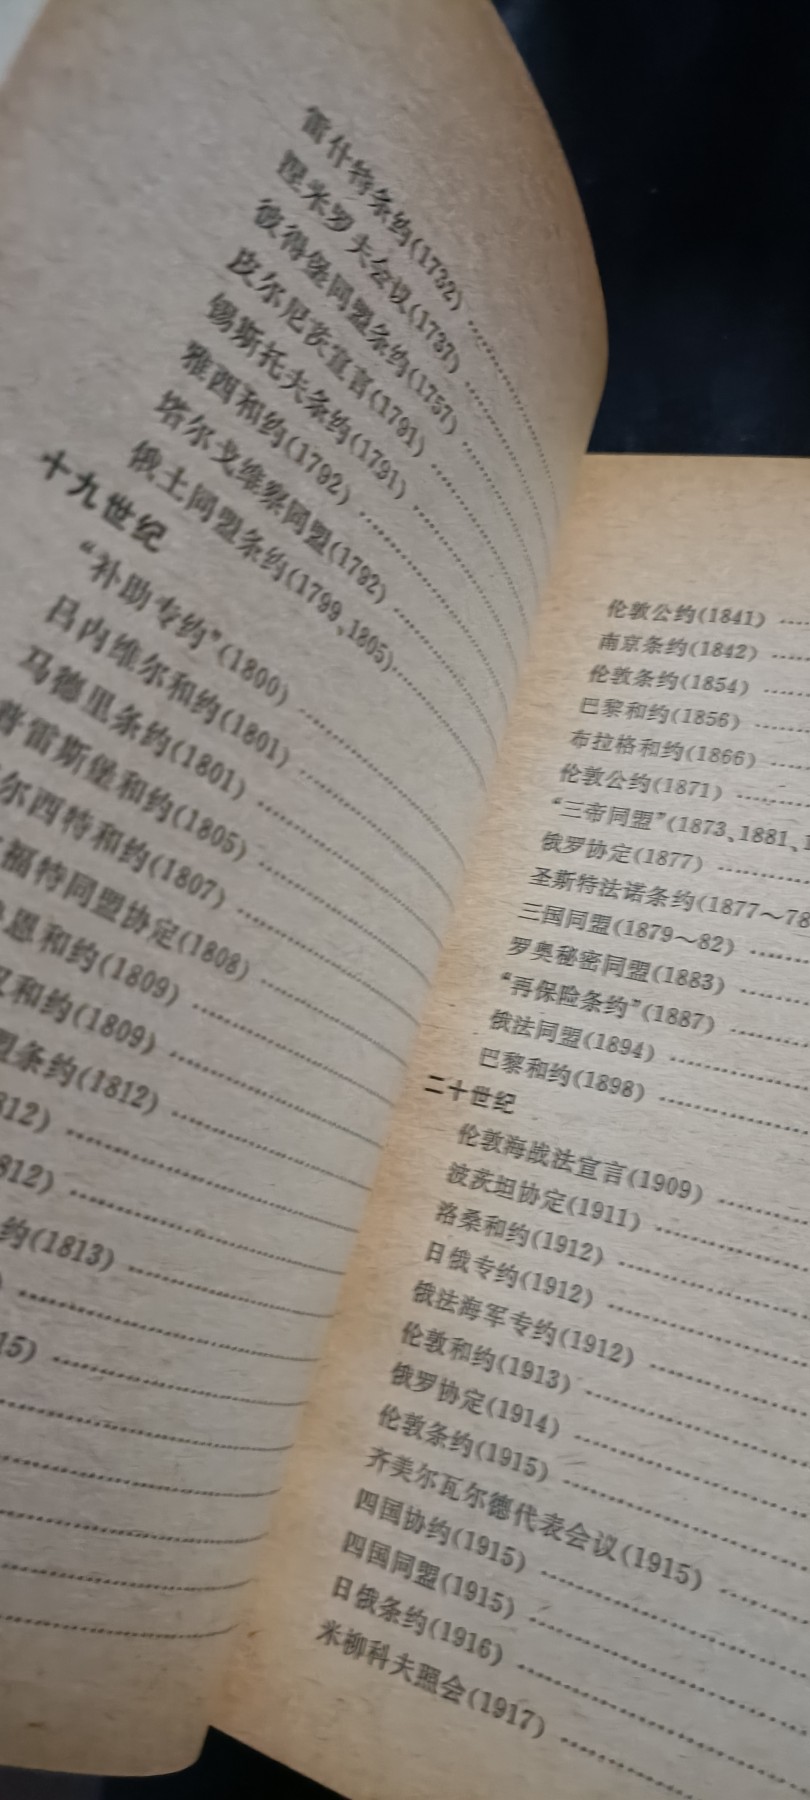 雷什特条约(1732)
涅米罗夫会议(1737)
彼得堡同盟条约(1757)
皮尔尼茨宣言(1791)
锡斯托夫条约(1791)
雅西和约(1792)
塔尔戈维察同盟(1792)
俄土同盟条约(1799、1805)
十九世纪
“补助专约”(1800)
吕内维尔和约(1801)
马德里条约(1801)
普雷斯堡和约(1805)
尔西特和约(1807)
福特同盟协定(1808)
恩和约(1809)
和约(1809)
盟条约(1812)
812)
812)
约(1813)
)
15)
伦敦公约(1841)
南京条约(1842)
伦敦条约(1854)
巴黎和约(1856)
布拉格和约(1866)
伦敦公约(1871)
“三帝同盟”(1873、1881、1
俄罗协定(1877)
圣斯特法诺条约(1877～78
三国同盟(1879～82)
罗奥秘密同盟(1883)
“再保险条约”(1887)
俄法同盟(1894)
巴黎和约(1898)
二十世纪
伦敦海战法宣言(1909)
波茨坦协定(1911)
洛桑和约(1912)
日俄专约(1912)
俄法海军专约(1912)
伦敦和约(1913)
俄罗协定(1914)
伦敦条约(1915)
齐美尔瓦尔德代表会议(1915)
四国协约(1915)
四国同盟(1915)
日俄条约(1916)
米柳科夫照会(1917)